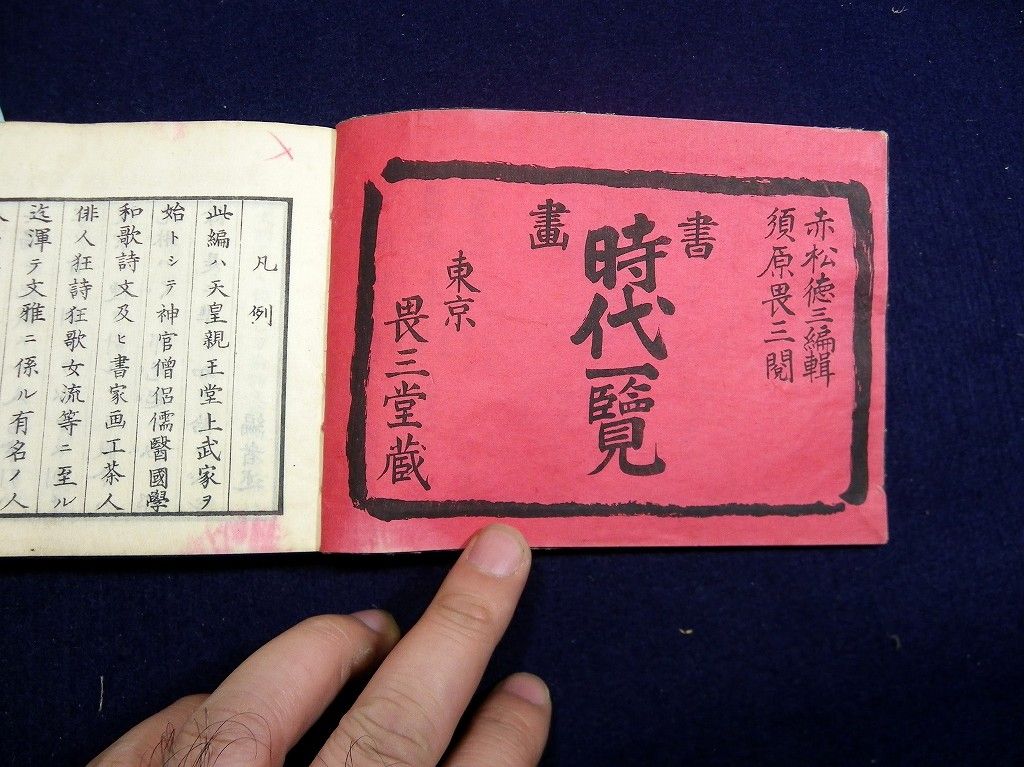 赤松徳三編輯
須原畏三閲
書畫
時代一覽
東京
畏三堂蔵
凡例
此編ハ天皇親王堂上武家ヲ
始トシテ神官僧侶儒醫國學
和歌詩文及ヒ書家画工茶人
俳人狂詩狂歌女流等ニ至ル
迄渾テ文雅ニ係ル有名ノ人